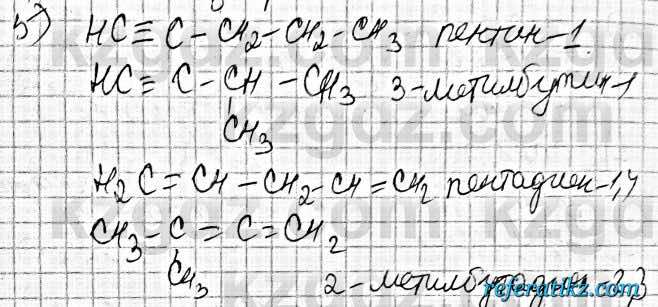 5) HC ≡ C – CH2 – CH2 – CH3 пентин-1
HC ≡ C – CH – CH3 3-метилбутин-1
CH3
H2C = CH – CH2 – CH = CH2 пентадиен-1,4
CH3 – C = C = CH2
CH3
2-метилбутадиен-2,3
kzgdz.com
referatikz.com